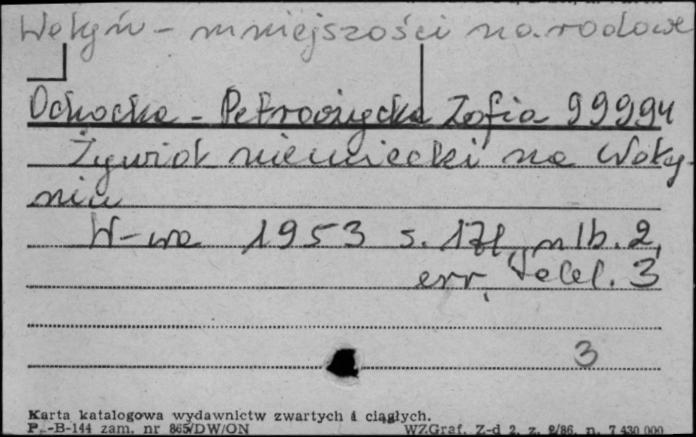 Wołyń - mniejszości narodowe
Ochocka - Petrażycka Zofia 99994
Żywioł niemiecki na Woły-
niu
W-wa 1953 s. 171, nlb. 2,
err,
3
3
Karta katalogowa wydawnictw zwartych i ciągłych.
P.-B-144 zam. nr 865/DW/ON WZGraf. Z-d 2. z. 2/86. n. 7 430 000